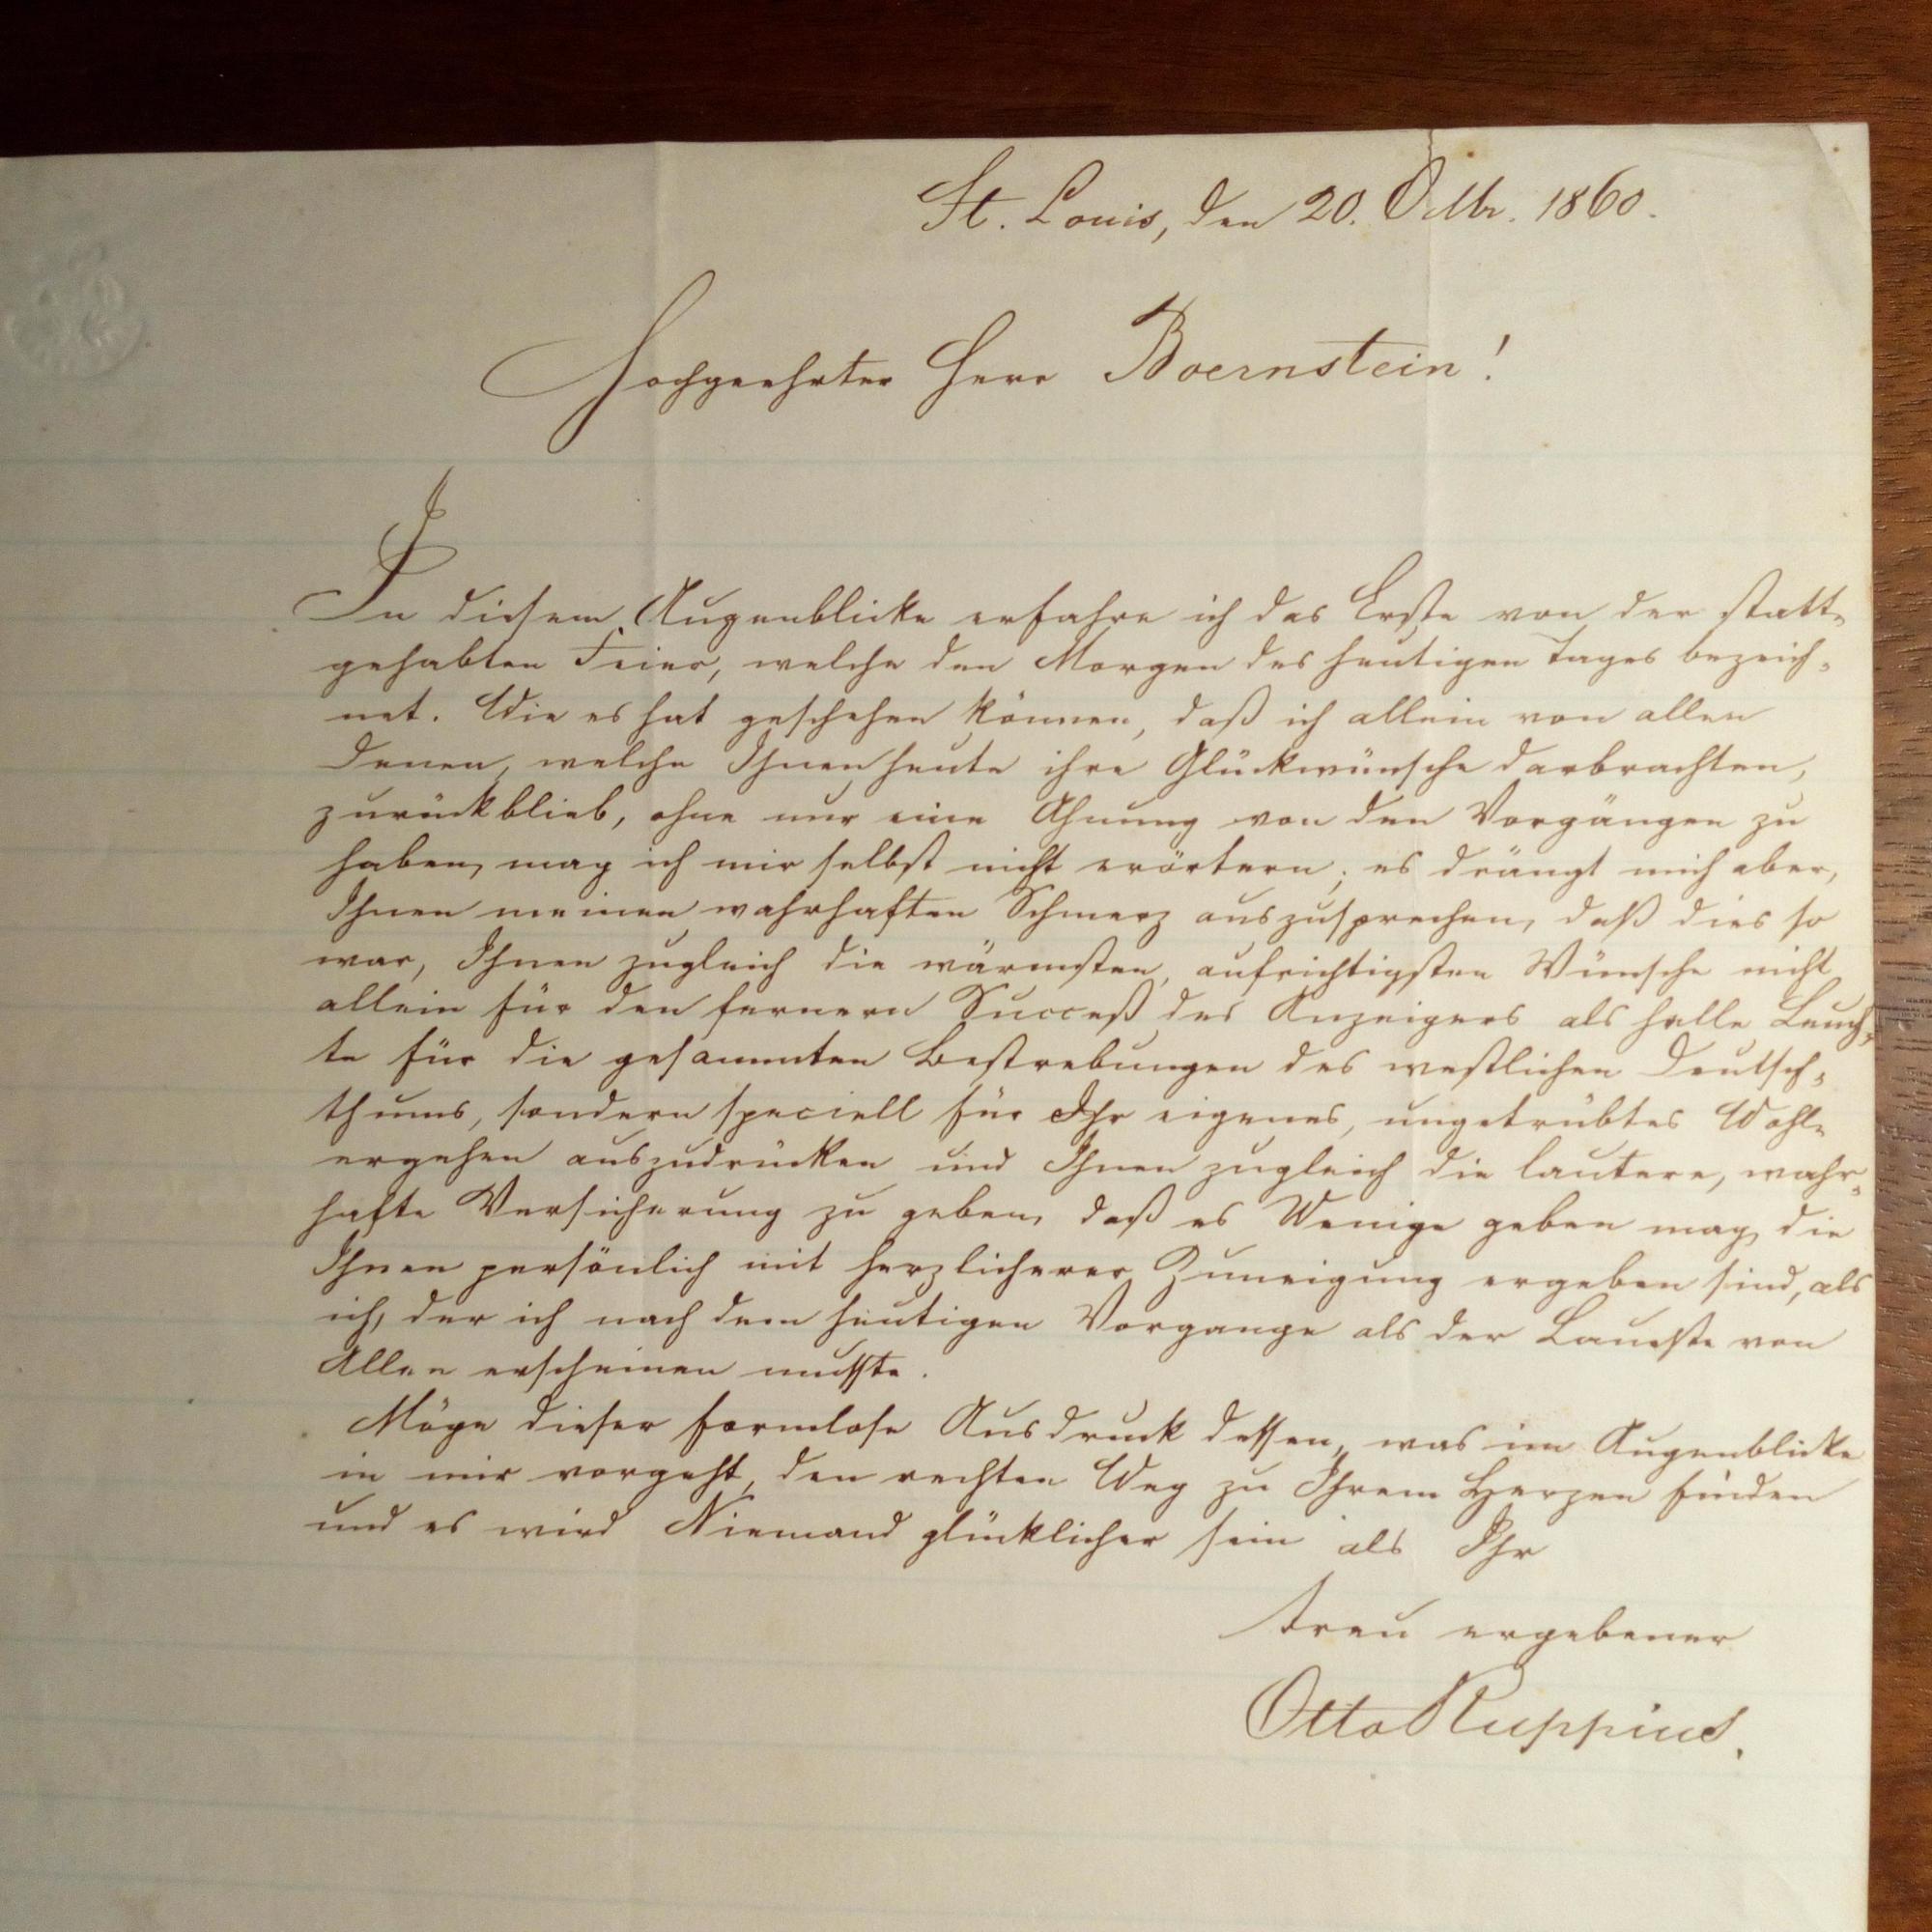 St. Louis, den 20. Octbr. 1860.
Hochgeehrter Herr Boernstein!
In diesem Augenblicke erfahre ich das Erste von der statt-
gehabten Feier, welche den Morgen des heutigen Tages bezeich-
net. Wie es hat geschehen können, daß ich allein von allen
Denen, welche Ihnen heute ihre Glückwünsche darbrachten,
zurückblieb, ohne nur eine Ahnung von den Vorgängen zu
haben, mag ich mir selbst nicht erörtern; es drängt mich aber,
Ihnen meinen wahrhaften Schmerz auszusprechen, daß dies so
war, Ihnen zugleich die wärmsten, aufrichtigsten Wünsche nicht
allein für den fernern Succeß des Anzeigers als helle Leuch-
te für die gesammten Bestrebungen des westlichen Deutsch-
thums, sondern speciell für Ihr eigenes, ungetrübtes Wohl-
ergehen auszudrücken und Ihnen zugleich die lautere, wahr-
hafte Versicherung zu geben, daß es Wenige geben mag, die
Ihnen persönlich mit herzlicherer Zuneigung ergeben sind, als
ich, der ich nach dem heutigen Vorgange als der Laueste von
Allen erscheinen mußte.
Möge dieser formlose Ausdruck dessen, was im Augenblicke
in mir vorgeht, den rechten Weg zu Ihrem Herzen finden
und es wird Niemand glücklicher sein als Ihr
treu ergebener
Otto Ruppius.